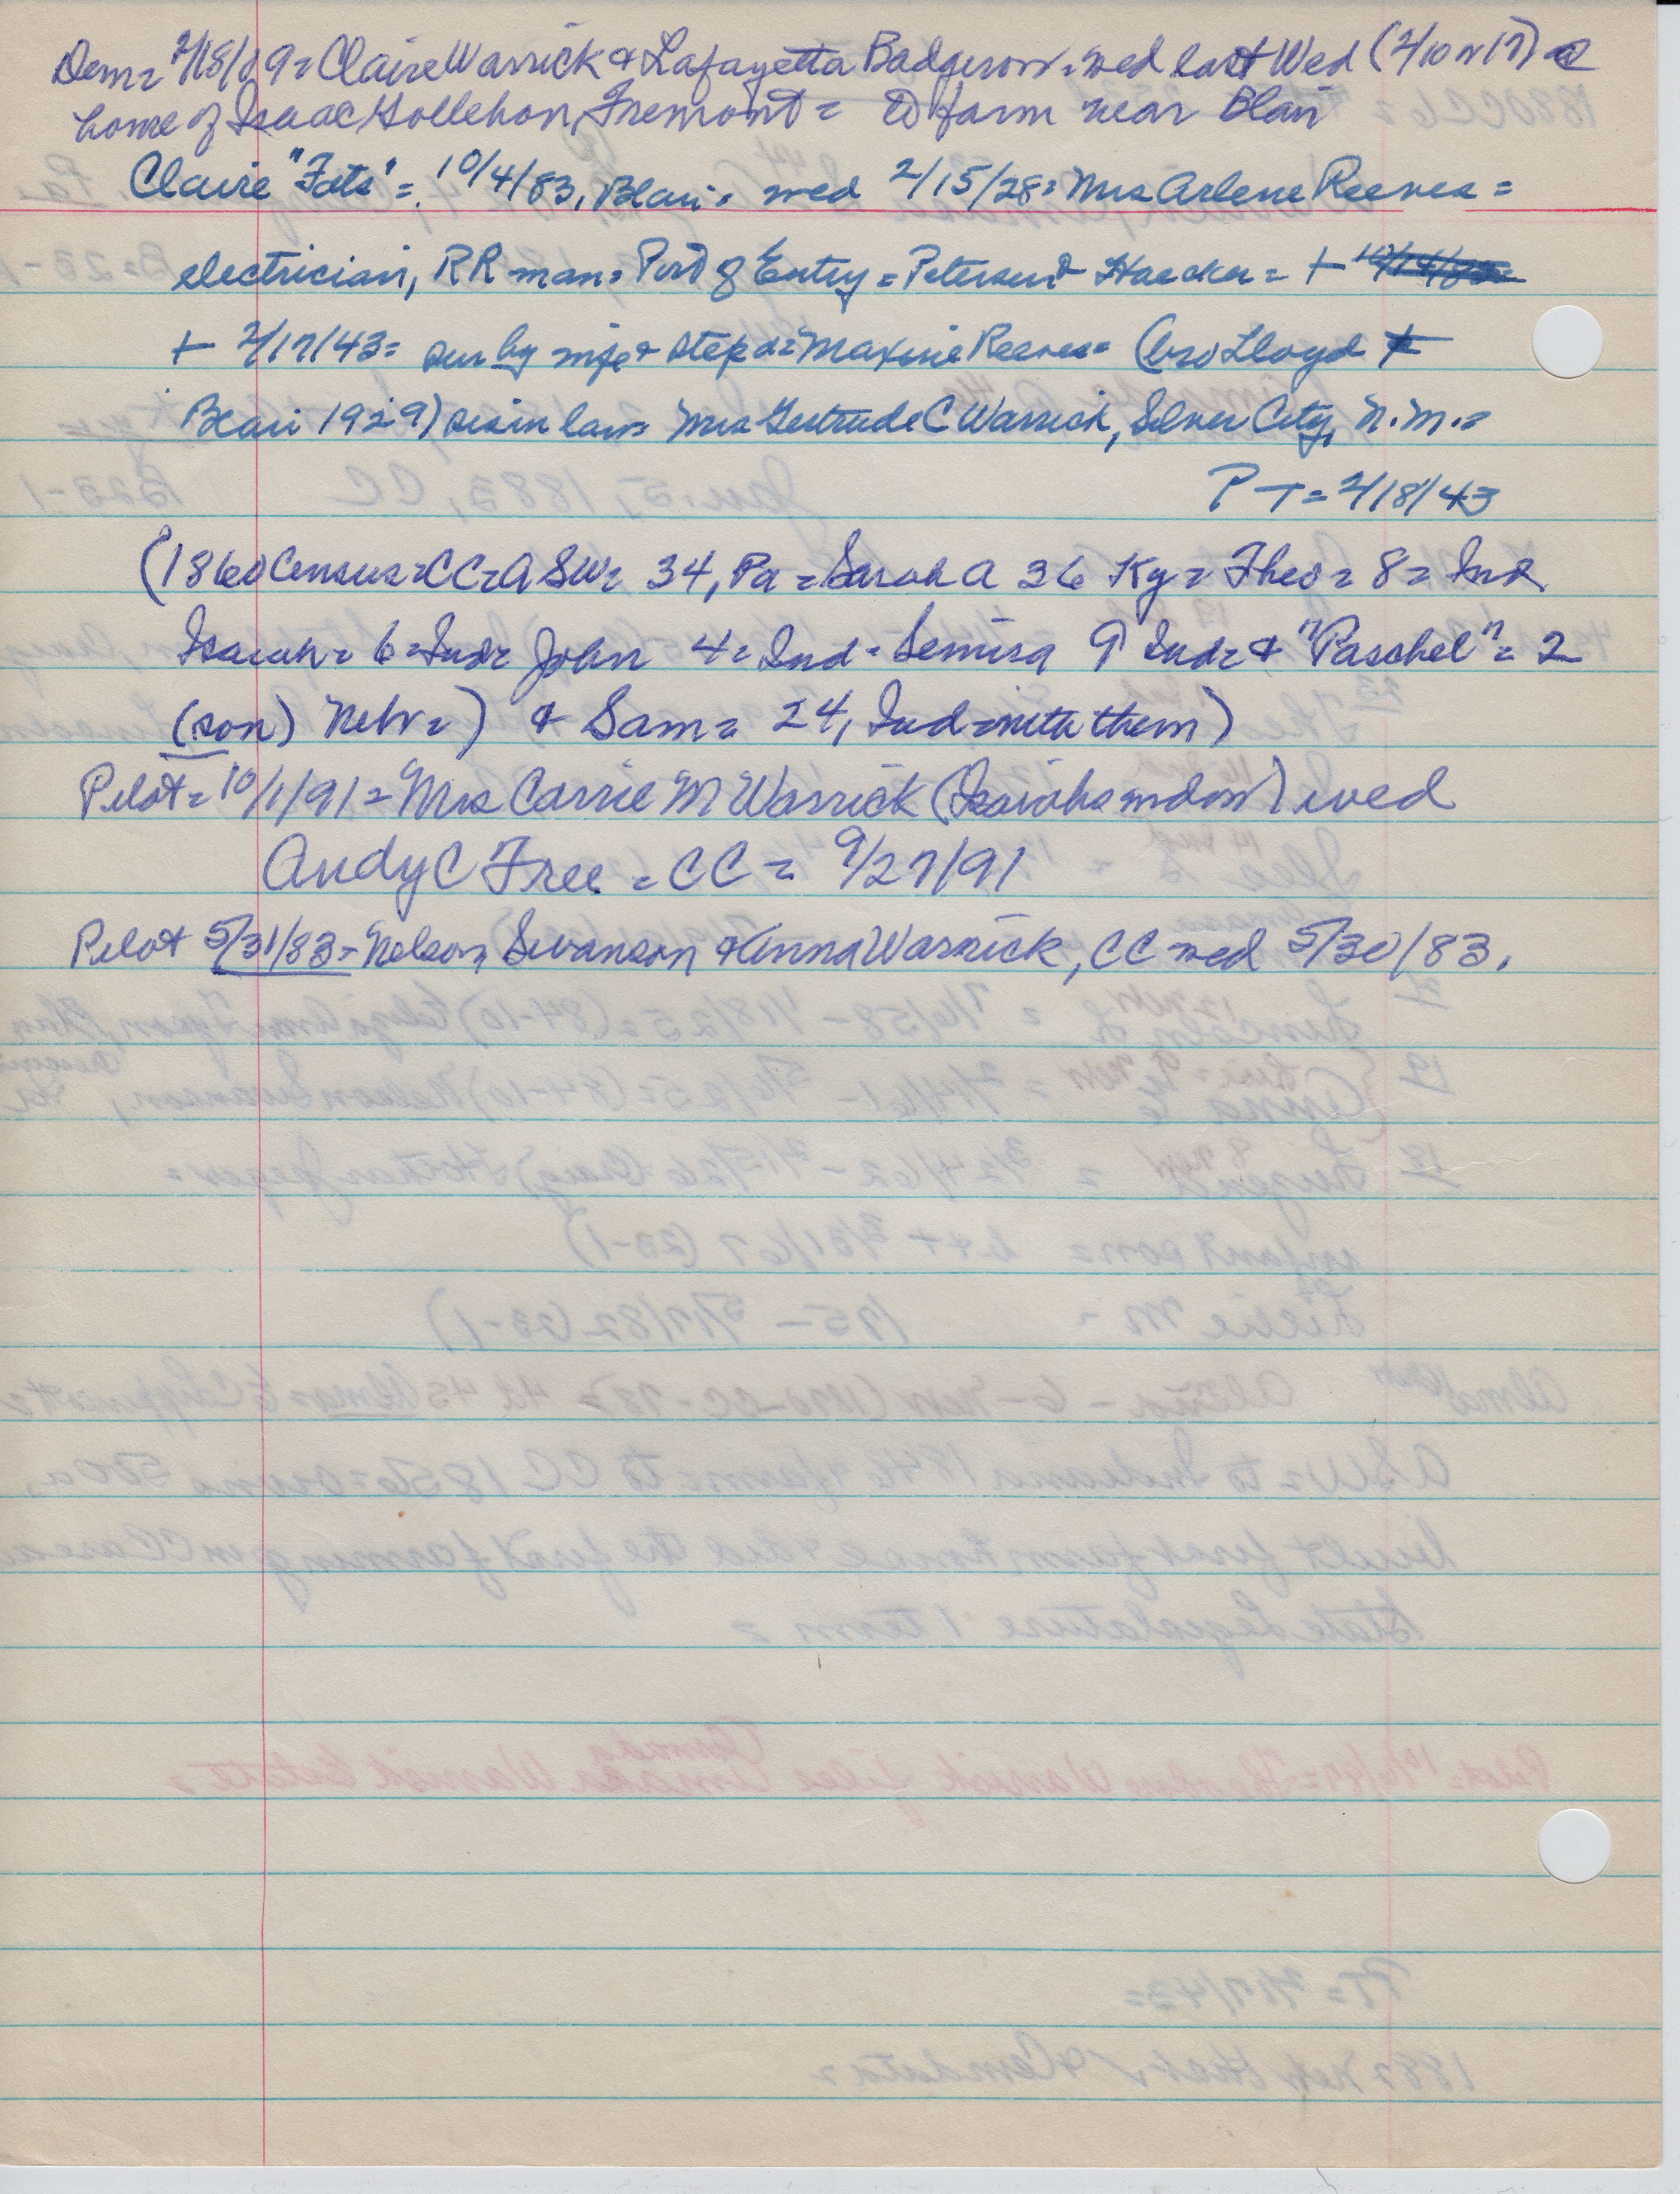 Dem = 2/18/09 = Claire Warrick & Lafayetta Badgerow = wed last Wed (2/10 or 17) @
home of Isaac Gollehon, Fremont = to farm near Blair
Claire "Fats" = 10/4/83, Blair = wed 2/15/28 = Mrs Arlene Reeves =
electrician, RR man = Port of Entry = Petersen & Haecker = +
+ 2/17/43 = sur by wife & step d = Maxine Reeves = (bro Lloyd +
Blair 1929) sis in law = Mrs Gertrude C Warrick, Silver City, N.M. =
PT = 2/18/43
(1860 Census = CC = ASW = 34, Pa = Sarah A 36 Ky = Theo = 8 = Ind
Isaiah = 6 = Ind = John 4 = Ind = 9 Ind = & "Paschel" = 2
(son) Nebr = ) & Sam = 24, Ind = with them)
Pilot = 10/1/91 = Mrs Carrie M Warrick (Isaiahs widow) wed
Andy C Free = CC = 9/27/91
Pilot 5/31/83 = Nelson Swanson & Anna Warrick, CC wed 5/30/83.